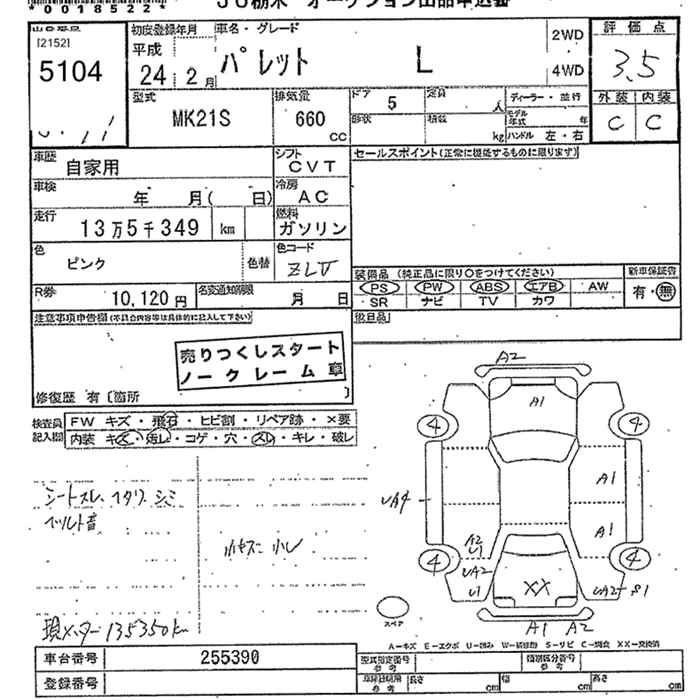 *0018522* JU栃木 オークション出品申込書
[2152]
5104
初度登録年月
平成
24年 2月
車名・グレード
パレット L
2WD
4WD
評価点
3.5
外装 内装
C C
型式
MK21S
排気量
660
CC
ドア 5
定員 人
形状
積数 kg
ディーラー・並行
モデル年式 年
ハンドル 左・右
車歴 自家用
シフト CVT
セールスポイント(正常に機能するものに限ります)
車検 年 月( 日)
冷房 AC
走行 13万5千349 km
燃料 ガソリン
色 ピンク 色替
色コード ZLV
装備品(純正品に限り○をつけてください)
新車保証書
PS PW ABS エアB AW
有・無
SR ナビ TV カワ
R券 10,120円
名変通知期限 月 日
注意事項申告欄(不具合内容等は具体的に記入して下さい)
後日品
売りつくしスタート
ノークレーム車
修復歴 有〔箇所 〕
検査員 FW キズ・飛石・ヒビ割・リペア跡・×要
記入欄 内装 キズ・汚レ・コゲ・穴・スレ・キレ・破レ
シートスレ、ヘタリ、シミ
ベルト音
小キズ 小レ
現メーター 135350km
A2
A1
4 4
A1
UA4
A1
A2
U1
4 4
UA2
U1
XX
UA2 S1
A1 A2
スペア
A=キズ E=エクボ U=凹み W=補修跡 S=サビ C=腐食 XX=交換済
車台番号 255390
型式指定番号 参考
類別区分番号 参考
登録番号
車検証記載 参考
長さ cm 幅 cm 高さ cm